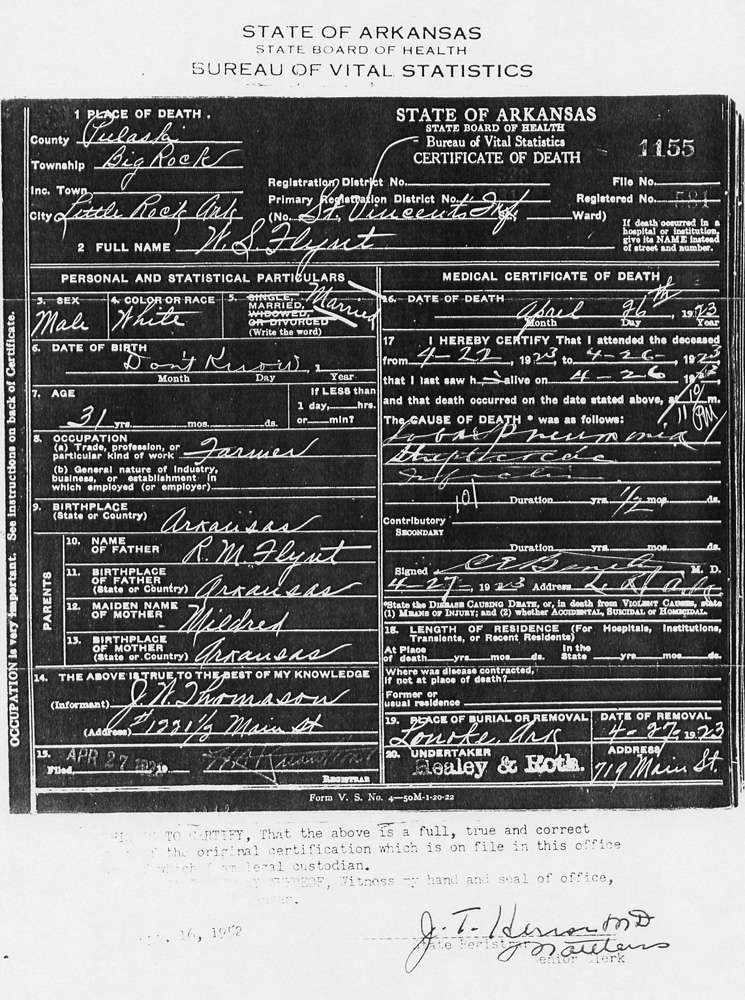 STATE OF ARKANSAS
STATE BOARD OF HEALTH
BUREAU OF VITAL STATISTICS
1 PLACE OF DEATH.
County Pulaski
Township Big Rock
Inc. Town
City Little Rock Ark
STATE OF ARKANSAS
STATE BOARD OF HEALTH
Bureau of Vital Statistics
CERTIFICATE OF DEATH
1155
Registration District No. File No.
Primary Registration District No. Registered No. 591
(No. St. Vincents Inf St. Ward)
If death occurred in a hospital or institution, give its NAME instead of street and number.
2 FULL NAME W. S. Flynt
PERSONAL AND STATISTICAL PARTICULARS
3. SEX Male
4. COLOR OR RACE White
5. SINGLE, MARRIED, WIDOWED, OR DIVORCED (Write the word) Married
6. DATE OF BIRTH Don't Know, 1
Month Day Year
7. AGE
31 yrs. mos. ds.
If LESS than 1 day, hrs. or min?
8. OCCUPATION
(a) Trade, profession, or particular kind of work Farmer
(b) General nature of Industry, business, or establishment in which employed (or employer)
9. BIRTHPLACE (State or Country) Arkansas
PARENTS
10. NAME OF FATHER R. M. Flynt
11. BIRTHPLACE OF FATHER (State or Country) Arkansas
12. MAIDEN NAME OF MOTHER Mildred
13. BIRTHPLACE OF MOTHER (State or Country) Arkansas
14. THE ABOVE IS TRUE TO THE BEST OF MY KNOWLEDGE
(Informant) J. W. Thomason
(Address) #1221½ Main St
15. Filed APR 27 19
REGISTRAR
MEDICAL CERTIFICATE OF DEATH
16. DATE OF DEATH April 26th, 1923
Month Day Year
17 I HEREBY CERTIFY That I attended the deceased
from 4-22, 1923, to 4-26-, 1923
that I last saw h alive on 4-26 1923
and that death occurred on the date stated above, at 10/11 PM m.
The CAUSE OF DEATH * was as follows:
Lobar Pneumonia
Streptococcic
Infection
101 Duration yrs. ½ mos. ds.
Contributory
SECONDARY
Duration yrs. mos. ds.
Signed M. D.
4-27-, 1923 Address L. R. Ark
*State the DISEASE CAUSING DEATH, or, in death from VIOLENT CAUSES, state
(1) MEANS OF INJURY; and (2) whether ACCIDENTAL, SUICIDAL or HOMICIDAL.
18. LENGTH OF RESIDENCE (For Hospitals, Institutions, Transients, or Recent Residents)
At Place of death yrs. mos. ds. In the State yrs. mos. ds.
Where was disease contracted, if not at place of death?
Former or usual residence
19. PLACE OF BURIAL OR REMOVAL Lonoke, Ark
DATE OF REMOVAL 4-27-1923
20. UNDERTAKER Healey & Roth.
ADDRESS 719 Main St.
OCCUPATION is very important. See instructions on back of Certificate.
Form V. S. No. 4—50M-1-20-22
TO CERTIFY, That the above is a full, true and correct
the original certification which is on file in this office
which I am legal custodian.
WHEREOF, Witness my hand and seal of office,
16, 1952
J. T. Herron MD
State Registrar
Senior Clerk